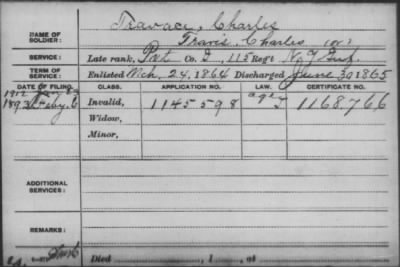 Travace, Charles
NAME OF SOLDIER: Travis, Charles
SERVICE: Late rank, Pvt Co. I, 115 Reg't N.Y. Inf.
TERM OF SERVICE: Enlisted Mch. 24, 1864 Discharged June 30 1865
DATE OF FILING. CLASS. APPLICATION NO. LAW. CERTIFICATE NO.
1912
1893 Feby. 6 Invalid, 1145598 age 1168.766
Widow,
Minor,
ADDITIONAL SERVICES:
REMARKS:
Died , 1 , at